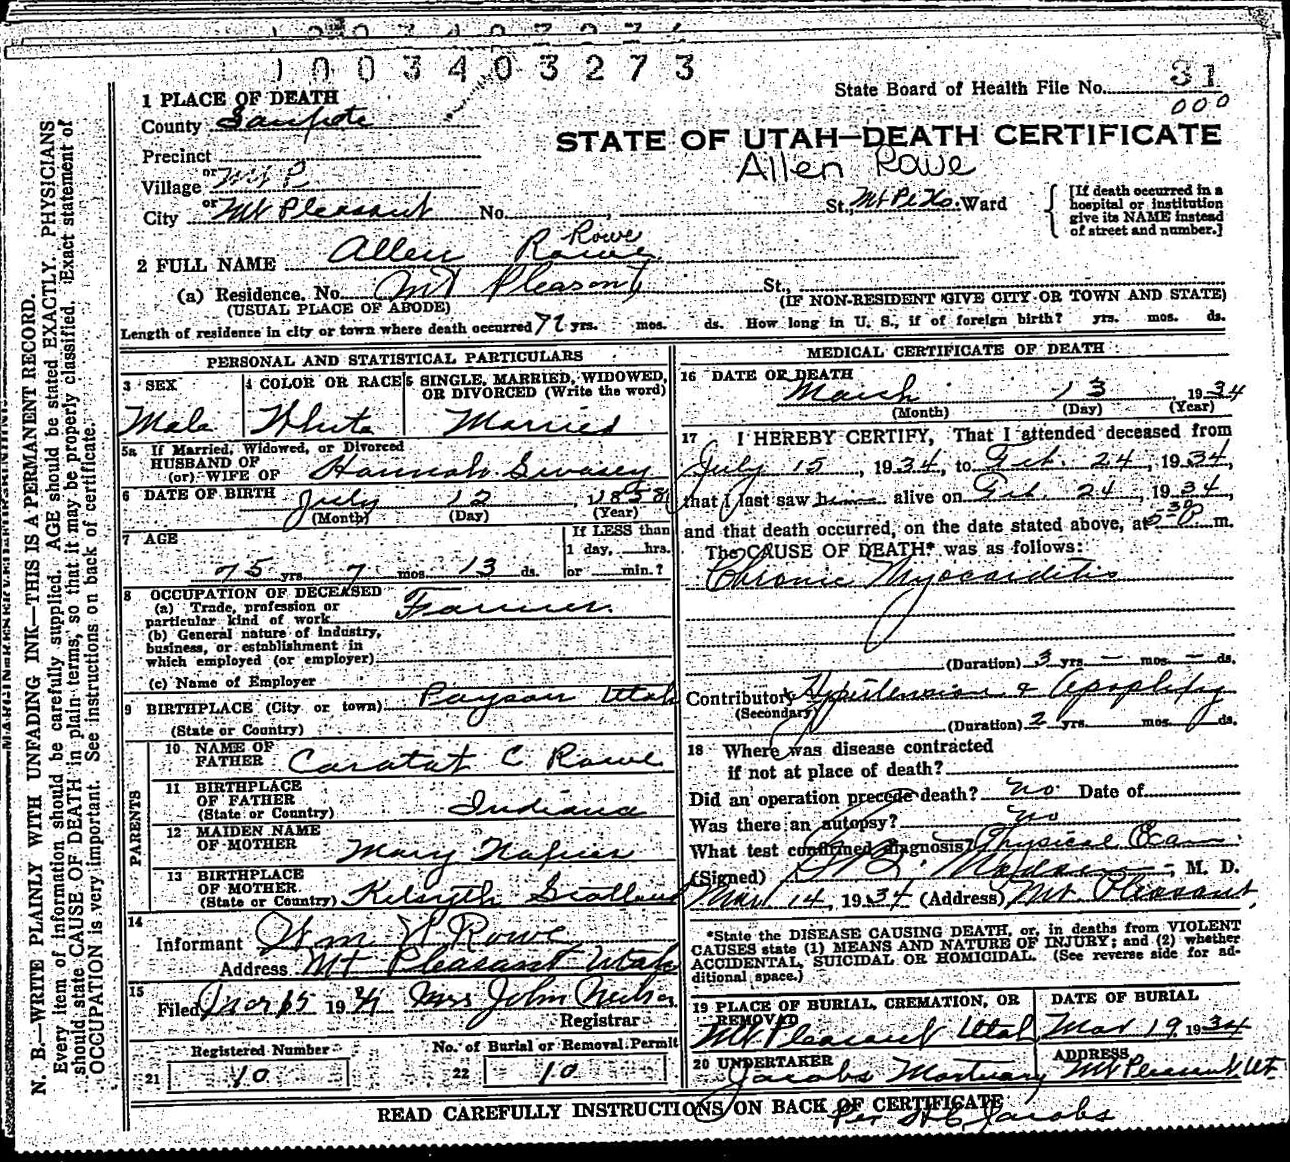 1003403273
State Board of Health File No. 31
000
1 PLACE OF DEATH
County Sanpete
STATE OF UTAH—DEATH CERTIFICATE
Precinct
Allen Rowe
or
Village Mt P
or
City Mt Pleasant No. , St., Ward
[If death occurred in a
hospital or institution
give its NAME instead
of street and number.]
Rowe
2 FULL NAME Allen Rowe
(a) Residence. No. Mt Pleasant St.,
(USUAL PLACE OF ABODE)
(IF NON-RESIDENT GIVE CITY OR TOWN AND STATE)
Length of residence in city or town where death occurred yrs. mos. ds. How long in U. S., if of foreign birth? yrs. mos. ds.
PERSONAL AND STATISTICAL PARTICULARS
3 SEX
Male
4 COLOR OR RACE
White
5 SINGLE, MARRIED, WIDOWED,
OR DIVORCED (Write the word)
Married
5a If Married, Widowed, or Divorced
HUSBAND OF
(or) WIFE OF Hannah
6 DATE OF BIRTH July 12, 1858
(Month) (Day) (Year)
7 AGE
75 yrs. 7 mos. 13 ds.
If LESS than
1 day, hrs.
or min.?
8 OCCUPATION OF DECEASED
(a) Trade, profession or
particular kind of work Farmer
(b) General nature of industry,
business, or establishment in
which employed (or employer)
(c) Name of Employer
9 BIRTHPLACE (City or town) Payson Utah
(State or Country)
PARENTS
10 NAME OF
FATHER Caratat C Rowe
11 BIRTHPLACE
OF FATHER
(State or Country) Indiana
12 MAIDEN NAME
OF MOTHER Mary Napier
13 BIRTHPLACE
OF MOTHER
(State or Country) Kilsyth Scotland
14
Informant Wm Rowe
Address Mt Pleasant Utah
15
Filed Mar 19 Mrs John
Registrar
Registered Number
21 10
No. of Burial or Removal Permit
22 10
MEDICAL CERTIFICATE OF DEATH
16 DATE OF DEATH
March 13, 1934
(Month) (Day) (Year)
17 I HEREBY CERTIFY, That I attended deceased from
July 15, 1934, to Feb. 24, 1934,
that I last saw him alive on Feb. 24, 1934,
and that death occurred, on the date stated above, at 5-30 P m.
The CAUSE OF DEATH* was as follows:
Chronic Myocarditis
(Duration) 3 yrs. – mos. – ds.
Contributory Hypertension & Apoplexy
(Secondary)
(Duration) 2 yrs. mos. ds.
18 Where was disease contracted
if not at place of death?
Did an operation precede death? no Date of
Was there an autopsy? no
What test confirmed diagnosis? Physical Exam
(Signed) Madsen, M. D.
Mar 14, 1934 (Address) Mt. Pleasant,
*State the DISEASE CAUSING DEATH, or, in deaths from VIOLENT
CAUSES state (1) MEANS AND NATURE OF INJURY; and (2) whether
ACCIDENTAL, SUICIDAL OR HOMICIDAL. (See reverse side for ad-
ditional space.)
19 PLACE OF BURIAL, CREMATION, OR
REMOVAL
Mt Pleasant Utah
DATE OF BURIAL
Mar 19 1934
20 UNDERTAKER
Jacobs Mortuary
ADDRESS
Mt Pleasant Ut
READ CAREFULLY INSTRUCTIONS ON BACK OF CERTIFICATE
Per Jacobs
N. B.—WRITE PLAINLY WITH UNFADING INK—THIS IS A PERMANENT RECORD.
Every item of information should be carefully supplied. AGE should be stated EXACTLY. PHYSICIANS
should state CAUSE OF DEATH in plain terms, so that it may be properly classified. Exact statement of
OCCUPATION is very important. See instructions on back of certificate.